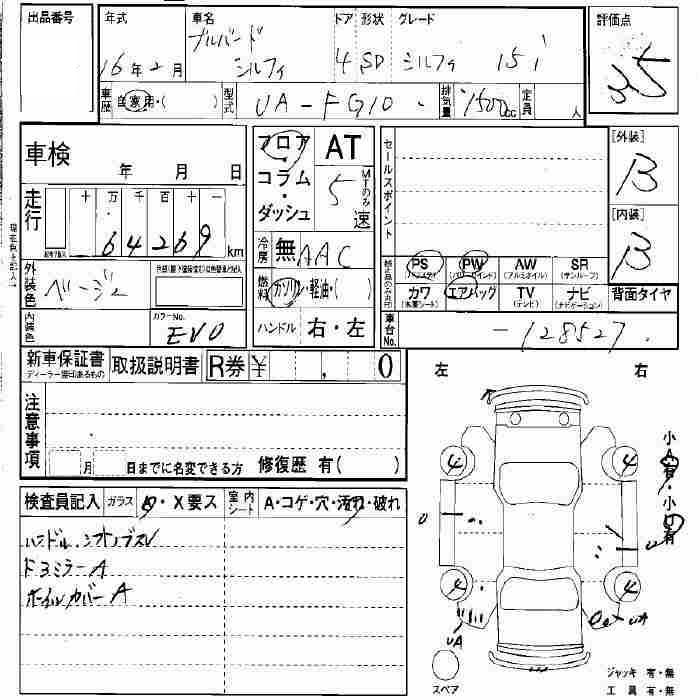 出品番号
年式
車名
ドア 形状 グレード
評価点
16年2月
ブルバード
シルフィ
4 SD シルフィ 15i
35
車歴 自家用・( )
型式 UA-FG10
排気量 1500cc
定員 人
車検 年 月 日
フロア・コラム・ダッシュ
AT
MTのみ 5速
セールスポイント
[外装]
B
[内装]
B
走行
十 万 千 百 十 一
64269 km
冷房 無 AAC
燃料 ガソリン・軽油・( )
ハンドル 右・左
外装色 ベージュ
内装色
カラーNo. EV0
PS PW AW SR
(パワステ) (パワーウインド) (アルミホイル) (サンルーフ)
カワ エアバッグ TV ナビ
(本革シート) (テレビ) (ナビゲーション)
背面タイヤ
車台No. -128527
新車保証書
ディーラー登印あるもの
取扱説明書
R券 ¥ , 0
左 右
注意事項
月 日までに名変できる方 修復歴 有( )
小A有・小U有
検査員記入 ガラス
・X要ス
室内シート A・コゲ・穴・汚れ・破れ
ドミラーA
ホイルカバーA
4 4
4 4
UA
スペア
ジャッキ 有・無
工具 有・無